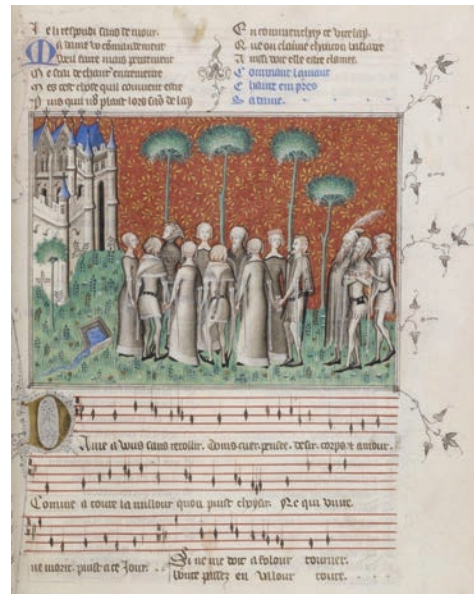 Je li respondi sans demour
Ma dame vo commandement
Vueil faire mais petitement
Me scai de chant entremetre
Mes cest chose quil couvient estre
Puis quil vous plaist lors sans delay
En commencay ce virelay
Que on claime chancon baladee
Ainsi doit elle estre clamee
Comment lamant
chante empres
sa dame.
Dame a vous sans retollir. Doins cuer. pensee. desir. corps. et amour.
Comme a toute la millour quon puist choysir. Ne qui vivre.
ne morir. puist a ce jour.
Si ne me doit a folour tourner.
vous passez en valour toute.